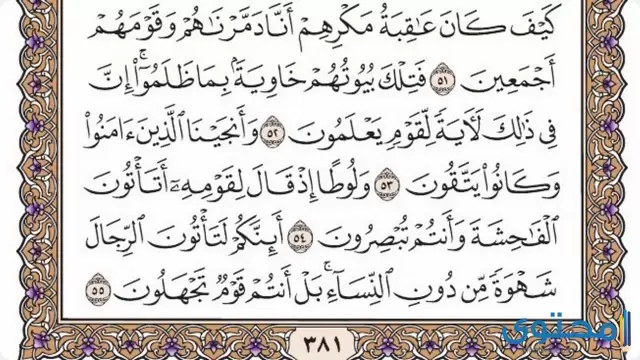 كَيْفَ كَانَ عَٰقِبَةُ مَكْرِهِمْ أَنَّا دَمَّرْنَٰهُمْ وَقَوْمَهُمْ
أَجْمَعِينَ ٥١ فَتِلْكَ بُيُوتُهُمْ خَاوِيَةًۢ بِمَا ظَلَمُوٓا۟ ۗ إِنَّ
فِى ذَٰلِكَ لَـَٔايَةً لِّقَوْمٍ يَعْلَمُونَ ٥٢ وَأَنجَيْنَا ٱلَّذِينَ ءَامَنُوا۟
وَكَانُوا۟ يَتَّقُونَ ٥٣ وَلُوطًا إِذْ قَالَ لِقَوْمِهِۦٓ أَتَأْتُونَ
ٱلْفَٰحِشَةَ وَأَنتُمْ تُبْصِرُونَ ٥٤ أَئِنَّكُمْ لَتَأْتُونَ ٱلرِّجَالَ
شَهْوَةً مِّن دُونِ ٱلنِّسَآءِ ۚ بَلْ أَنتُمْ قَوْمٌ تَجْهَلُونَ ٥٥
٣٨١
محتوى